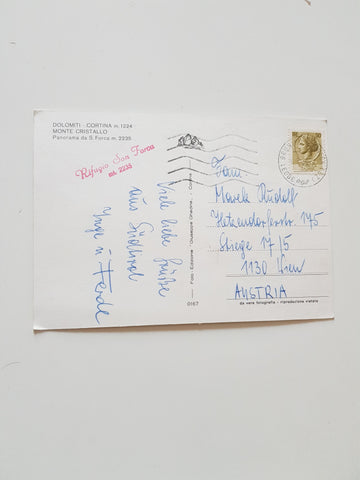 DOLOMITI - CORTINA m. 1224
MONTE CRISTALLO
Panorama da S. Forca m. 2235
Rifugio Son Forca
mt. 2235
Viele liebe Grüße
aus Südtirol
Inge u. Ferde
Foto Edizione - Giuseppe Ghedina - Cortina
0167
Fam
Rudolf
Hetzendorferstr. 175
Stiege 17/5
1130 Wien
AUSTRIA
da vera fotografia - riproduzione vietata